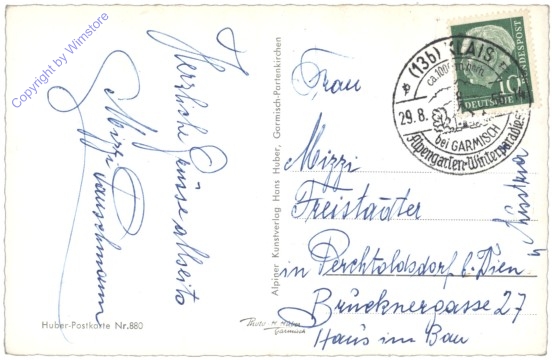 Copyright by Wimstore
Herzliche Grüsse allseits
Mizzi Pauschmann
Huber-Postkarte Nr. 880
Alpiner Kunstverlag Hans Huber, Garmisch-Partenkirchen
Photo H. Huber
Garmisch
(13b) KLAIS
29.8.
bei GARMISCH
Alpengarten-Winterparadies
DEUTSCHE BUNDESPOST
10
Frau
Mizzi
Freistädter
in Perchtoldsdorf b. Wien
Brucknergasse 27
Haus im Bau